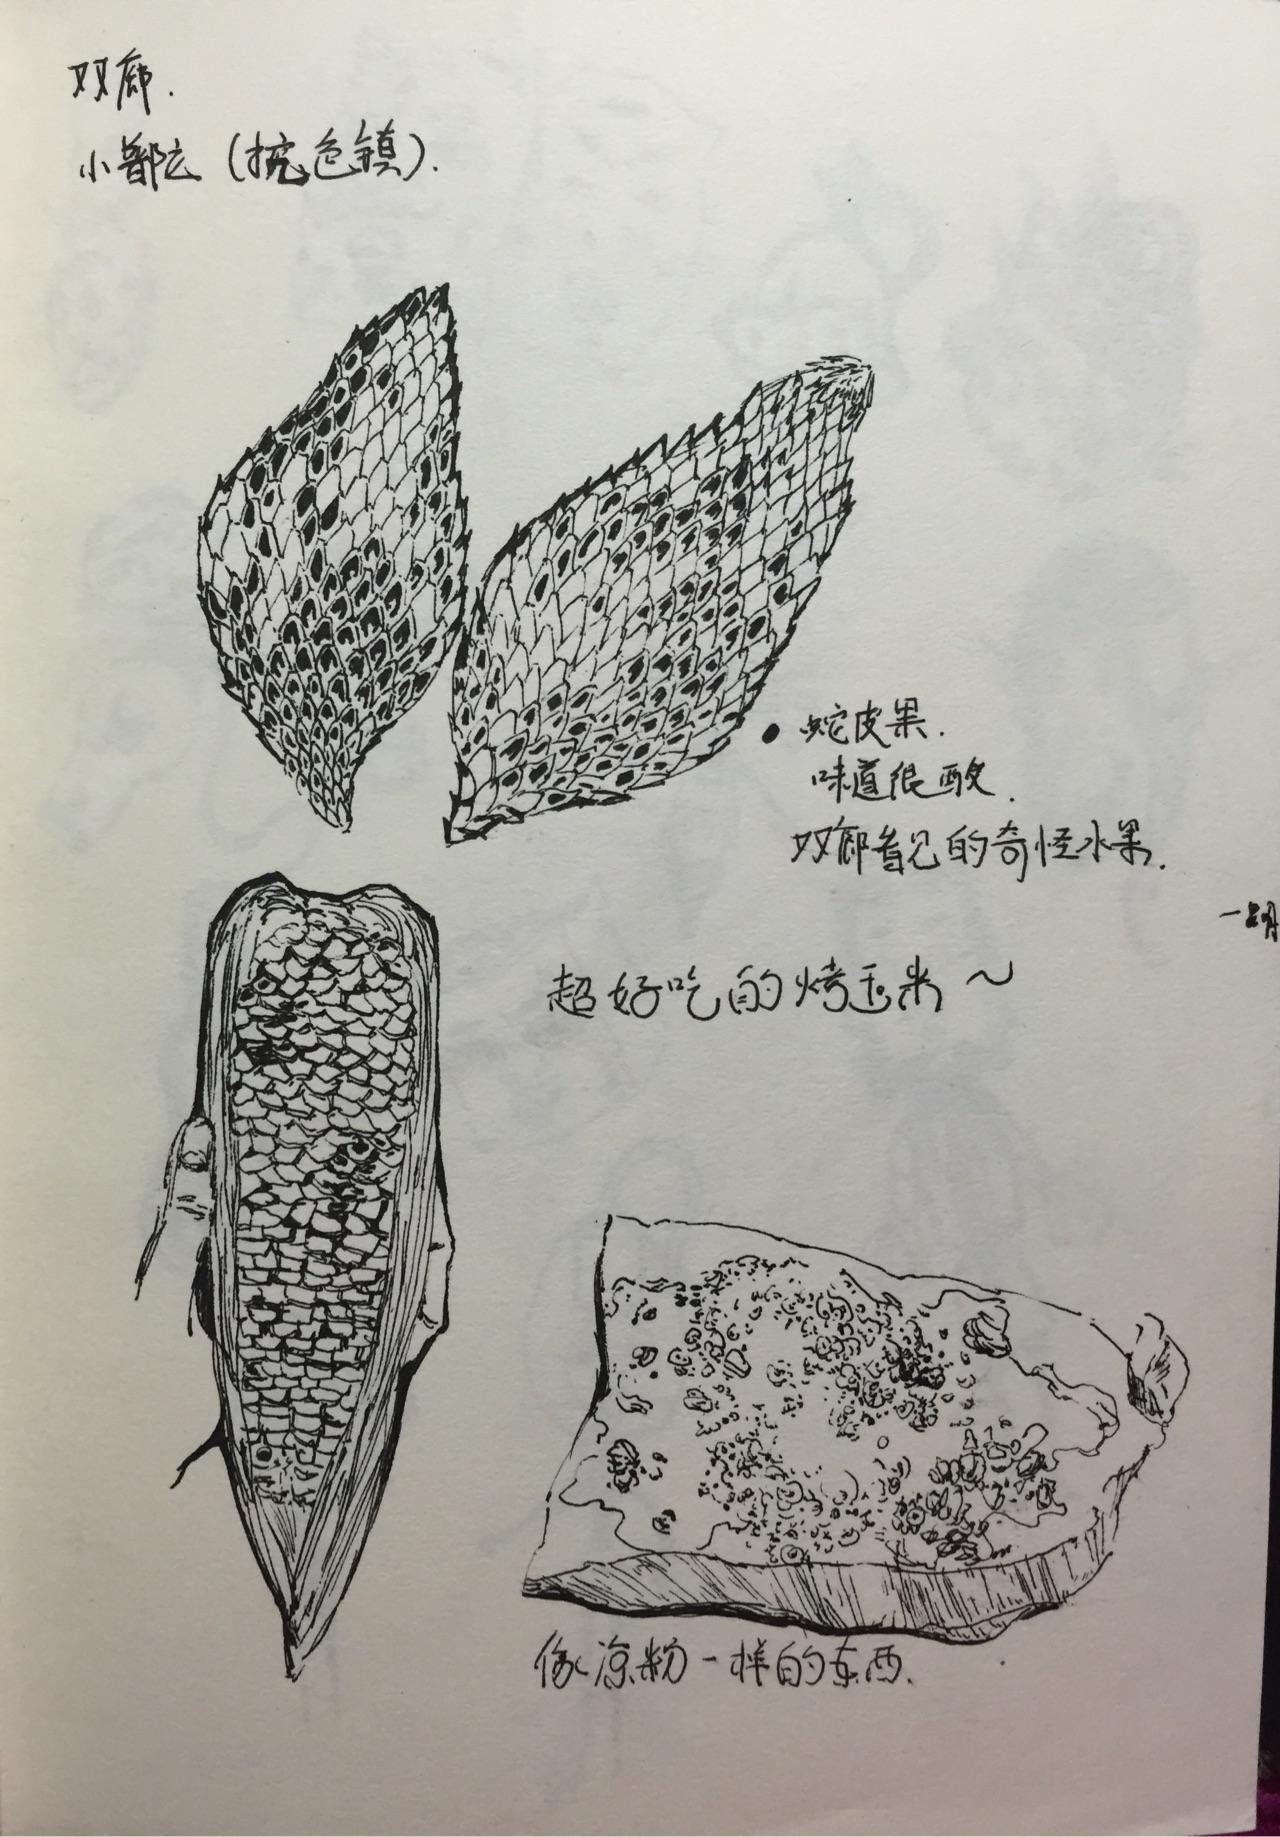 双廊.
小普陀（挖色镇）.
蛇皮果.
味道很酸.
双廊看见的奇怪水果.
超好吃的烤玉米～
像凉粉一样的东西.